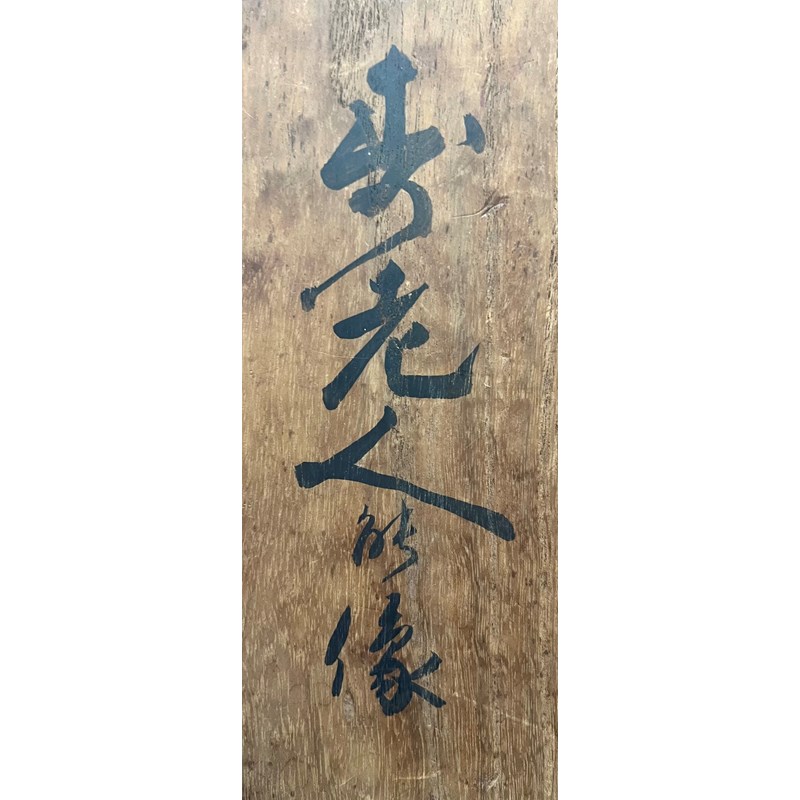 寿老人の像